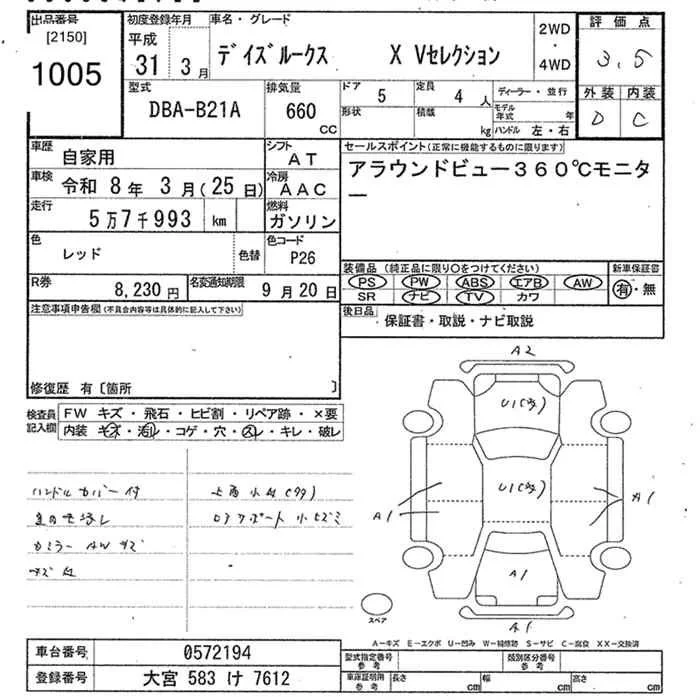 出品番号
[2150]
1005
初度登録年月
平成
31 3月
車名・グレード
デイズルークス X Vセレクション
2WD
・
4WD
評価点
3.5
外装 内装
D C
型式
DBA-B21A
排気量
660
CC
ドア
5
定員
4人
形状
積載
kg
ディーラー・並行
モデル年式 年
ハンドル 左・右
車歴
自家用
シフト
AT
車検
令和 8年 3月(25日)
冷房
AAC
走行
5万7千993 km
燃料
ガソリン
色
レッド
色替
色コード
P26
R券
8,230円
名変通知期限
9月20日
セールスポイント(正常に機能するものに限ります)
アラウンドビュー360℃モニタ
ー
装備品(純正品に限り○をつけてください)
PS PW ABS エアB AW
SR ナビ TV カワ
新車保証書
有・無
後日品
保証書・取説・ナビ取説
注意事項申告欄(不具合内容等は具体的に記入して下さい)
修復歴 有〔箇所 〕
検査員記入欄
FW キズ・飛石・ヒビ割・リペア跡・×要
内装 キズ・汚れ・コゲ・穴・スレ・キレ・破レ
ハンドルカバー付
A2
U1
U1
A1
A1
A1
A1
スペア
A-キズ E-エクボ U-凹み W-補修跡 S-サビ C-腐食 XX-交換済
車台番号
0572194
登録番号
大宮 583 け 7612
型式指定番号
参考
類別区分番号
参考
車庫証明用
参考
長さ cm
幅 cm
高さ cm